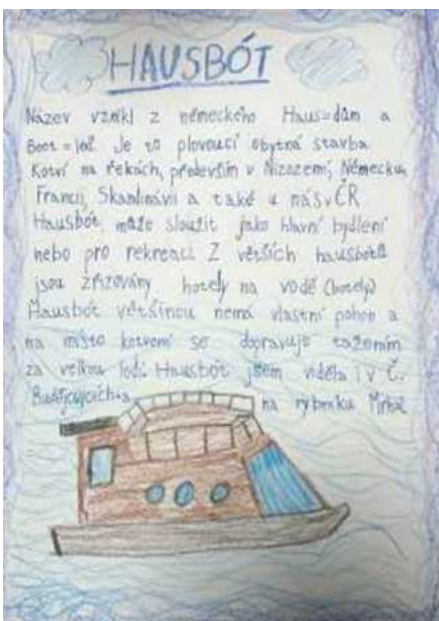 HAUSBÓT
Název vznikl z německého Haus=dům a
Boot=loď. Je to plovoucí obytná stavba.
Kotví na řekách, především v Nizozemí, Německu,
Francii, Skandinávii a také u nás v ČR
Hausbót může sloužit jako hlavní bydlení
nebo pro rekreaci Z větších hausbótů
jsou zřizovány hotely na vodě (botely)
Hausbót většinou nemá vlastní pohon a
na místo kotvení se dopravuje tažením
za velkou lodí. Hausbót jsem viděla i v Č.
Budějovicích a na rybníku